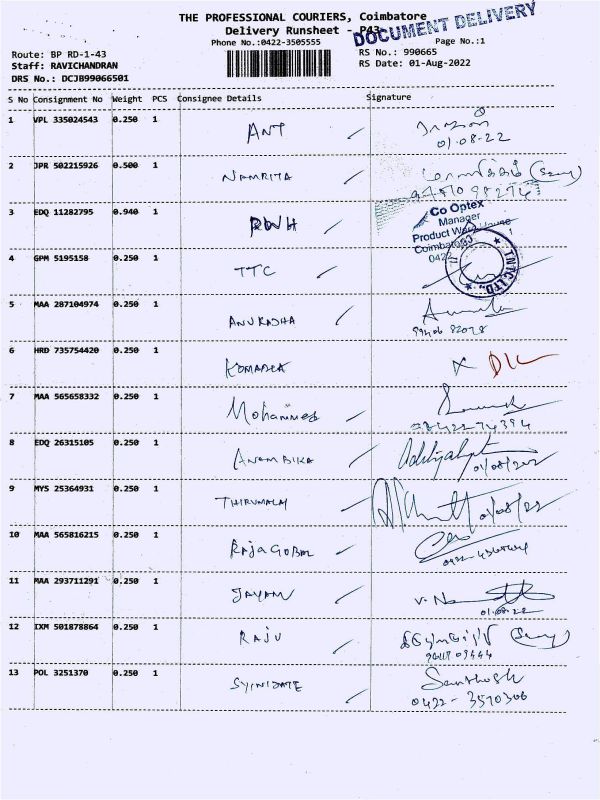 THE PROFESSIONAL COURIERS, Coimbatore
Delivery Runsheet - P43
DOCUMENT DELIVERY
Phone No.:0422-3505555
Page No.:1
Route: BP RD-1-43
RS No.: 990665
Staff: RAVICHANDRAN
RS Date: 01-Aug-2022
DRS No.: DCJB99066501
S No Consignment No Weight PCS Consignee Details Signature
1 VPL 335024543 0.250 1 ANT
01-08-22
2 JPR 502215926 0.500 1 NAMRITA
3 EDQ 11282795 0.940 1
Co Optex
Manager
Product Ware House
Coimbatore 1
0422
4 GPM 5195158 0.250 1 TTC
TNTC LTD.,
5 MAA 287104974 0.250 1 ANURADHA
99406 82078
6 HRD 735754420 0.250 1
7 MAA 565658332 0.250 1 Mohammed
98422 74394
8 EDQ 26315105 0.250 1 ANAMBIKA
01/08/202
9 MYS 25364931 0.250 1 THIRUMALAI
01/08/22
10 MAA 565816215 0.250 1 RAJAGOPAL
11 MAA 293711291 0.250 1 JAYAM
01.08.22
12 IXM 501878864 0.250 1 RAJU
13 POL 3251370 0.250 1 SYINIDATE Santhosh
0422 - 3570306